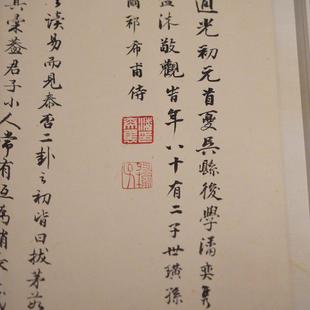 道光初元首夏吳縣後學潘奕雋
盥沐敬觀時年八十有二子世璜孫
爾祁希甫侍
讀易而見泰否二卦之初皆曰拔茅茹
其彙蓋君子小人常有互為消長